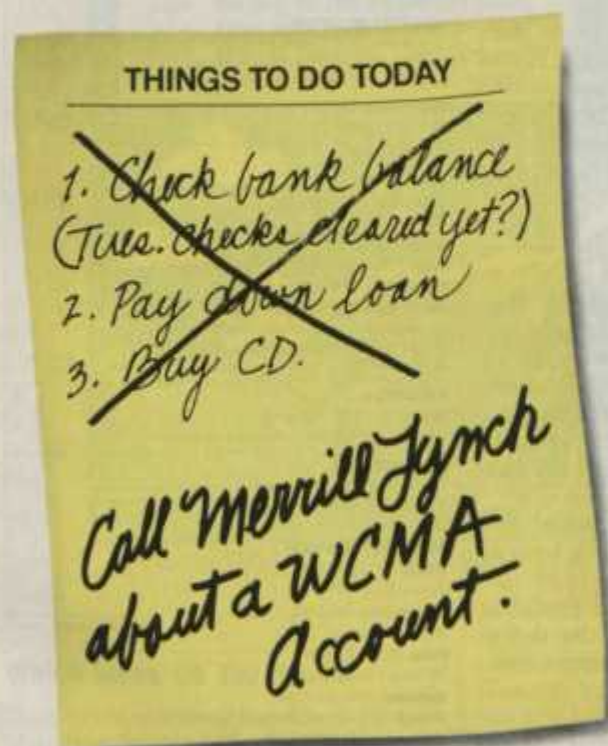 THINGS TO DO TODAY
1. Check bank balance
(Tues. checks cleared yet?)
2. Pay down loan
3. Buy CD.
Call Merrill Lynch
about a WCMA
Account.